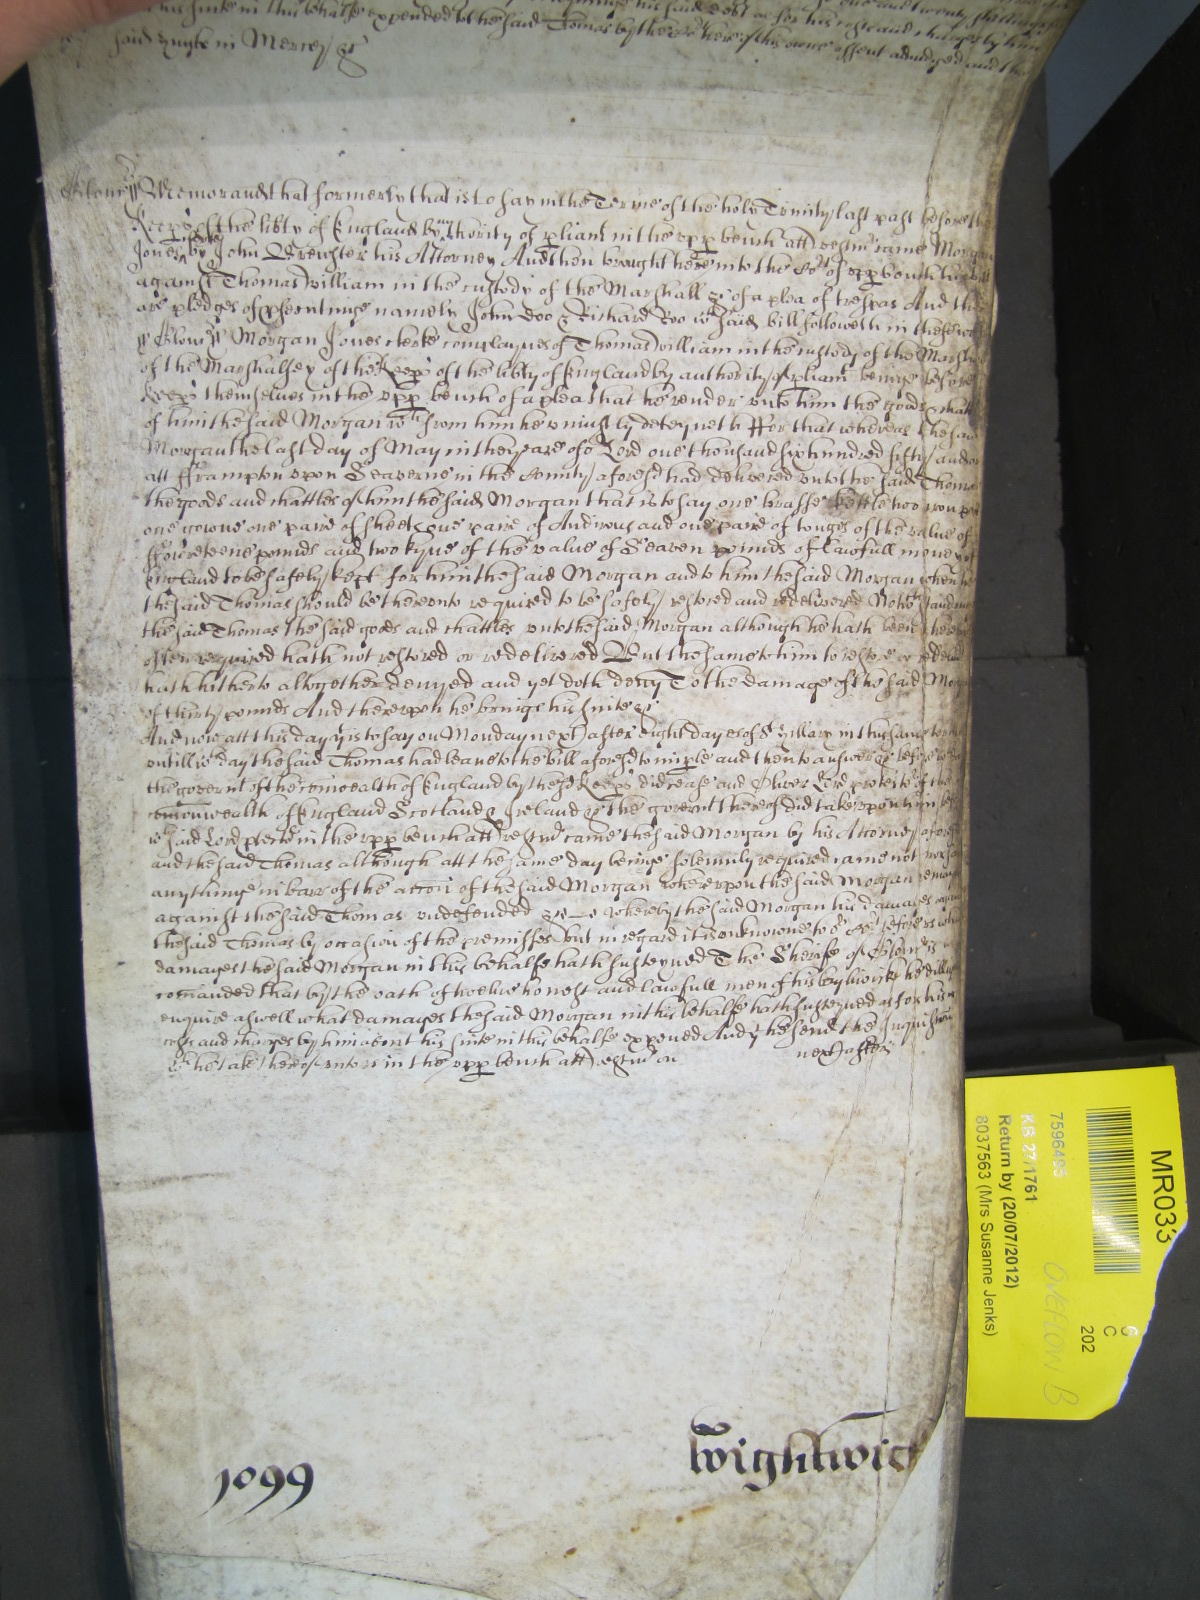 his suite in this behalfe expended to the said Thomas by the Cort here of his owne assent adiudged and the
said Knyle in Mercy &c
Glouc ss Memorand that formerly that is to say in the Terme of the holy Trinity last past before the
Keeps of the libty of England by authority of pliamt in the vpp bench att Westmr came Morgan
Jones clerke by John Brewster his Attorney And then brought here into the Cort of vpp bench his bill
against Thomas William in the custody of the Marshall &c of a plea of trespas And there
are pledges of psecutinge namely John Doo & Richard Roo wch said bill followeth in these words
ss Glouc ss Morgan Jones clerke complaynes of Thomas William in the custody of the Marshall
of the Marshalsey of the Keeps of the libty of England by authority of pliamt beinge before
Keeps themselves in the vpp bench of a plea that he render vnto him the goods & chattles
of him the said Morgan wch from him he vniustly deteyneth Ffor that whereas the said
Morgan the last day of May in the yeare of or Lord one thousand six hundred fifty and
att Fframpton vpon Seaverne in the County aforesd had delivered vnto the said Thomas
the goods and chattles of him the said Morgan that is to say one brasse kettle two
one gowne one paire of sheets one paire of Andirons and one paire of tonges of the value of
ffowreteene pounds and two kyne of the value of Seaven pounds of lawfull money of
England to be safely kept for him the said Morgan and to him the said Morgan when he
the said Thomas should be therevnto required to be safely restored and redelivered Notwthstandinge
the said Thomas the said goods and chattles vnto the said Morgan although he hath been therevnto
often required hath not restored or redelivered But the same to him to restore or redeliver
hath hitherto altogether denyed and yet doth deny To the damage of the said Morgan
of thirty pounds And therevpon he bringe his suite &c
And now att this day yt is to say on Monday next after eight dayes of St Hillary in this same terme
vntill wch day the said Thomas had leave to the bill aforesd to imple and then to answer &c before wch
the governt of the comonwealth of England by the sd Keeps did cease and Oliver Lord protector of the
comonwealth of England Scotland & Ireland &c the governt thereof did take vpon him before
wch said Lord ptector in the vpp bench att Westmr came the said Morgan by his Attorney aforesd
and the said Thomas although att the same day beinge solemnly required came not nor said
anythinge in barr of the accon of the said Morgan wherevpon the said Morgan remayneth
against the said Thomas vndefended &c — Whereby the said Morgan his damages against
the said Thomas by occasion of the premisses but in regard it is vnknowne to ye Cort here what
damages the said Morgan in this behalfe hath susteyned The Sherife of Glouc is
comanded that by the oath of twelve honest and lawfull men of his bayliwicke he dilligently
enquire aswell what damages the said Morgan in this behalfe hath susteyned as for his
costs and charges by him about his suite in this behalfe expended And yt he send the Inquisicon
wch he take thereof vnto vs in the vpp bench att Westmr on next after
1099
Wightwick
MR033
7596495
KB 27/1761
Return by (20/07/2012)
8037563 (Mrs Susanne Jenks)
C
202
OVERFLOW B